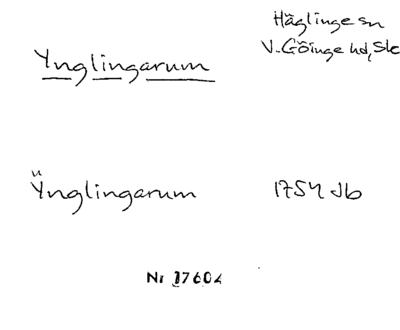 Häglinge sn
V. Göinge hd, Sk
Ynglingarum
Ÿnglingarum 1754 Jb
Nr 17604